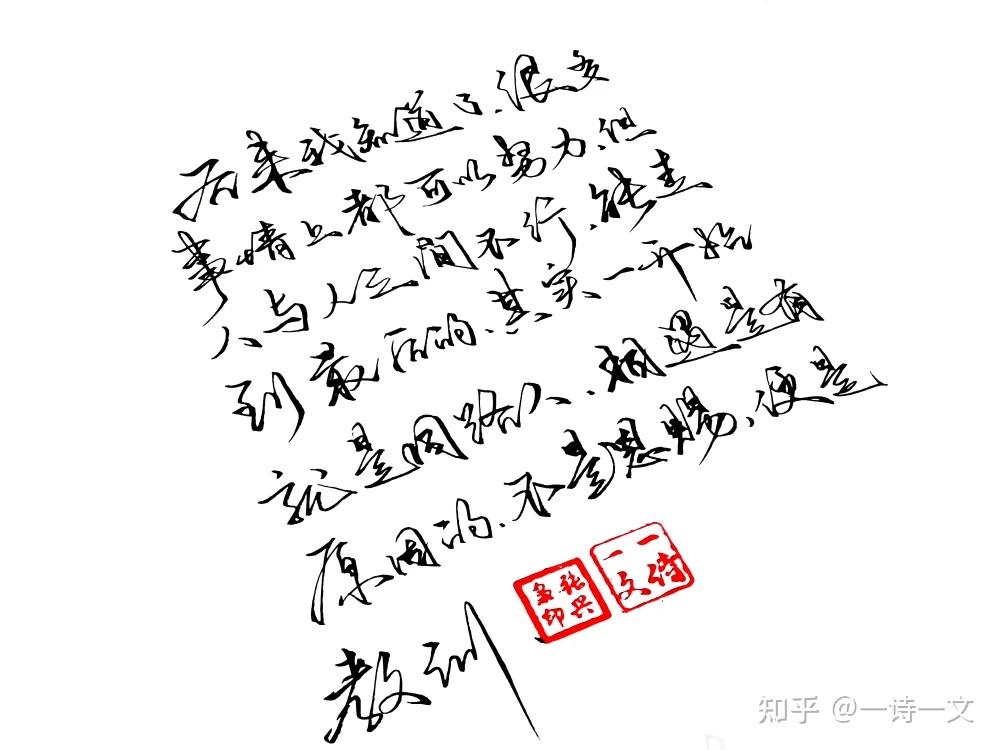 后来我知道了、很多
事情上都可以努力、但
人与人之间不行、能走
到最后的、其实、一开始
就是同路人、相遇是有
原因的、不是恩赐、便是
教训
一诗
一文
张兴
印
知乎 @一诗一文